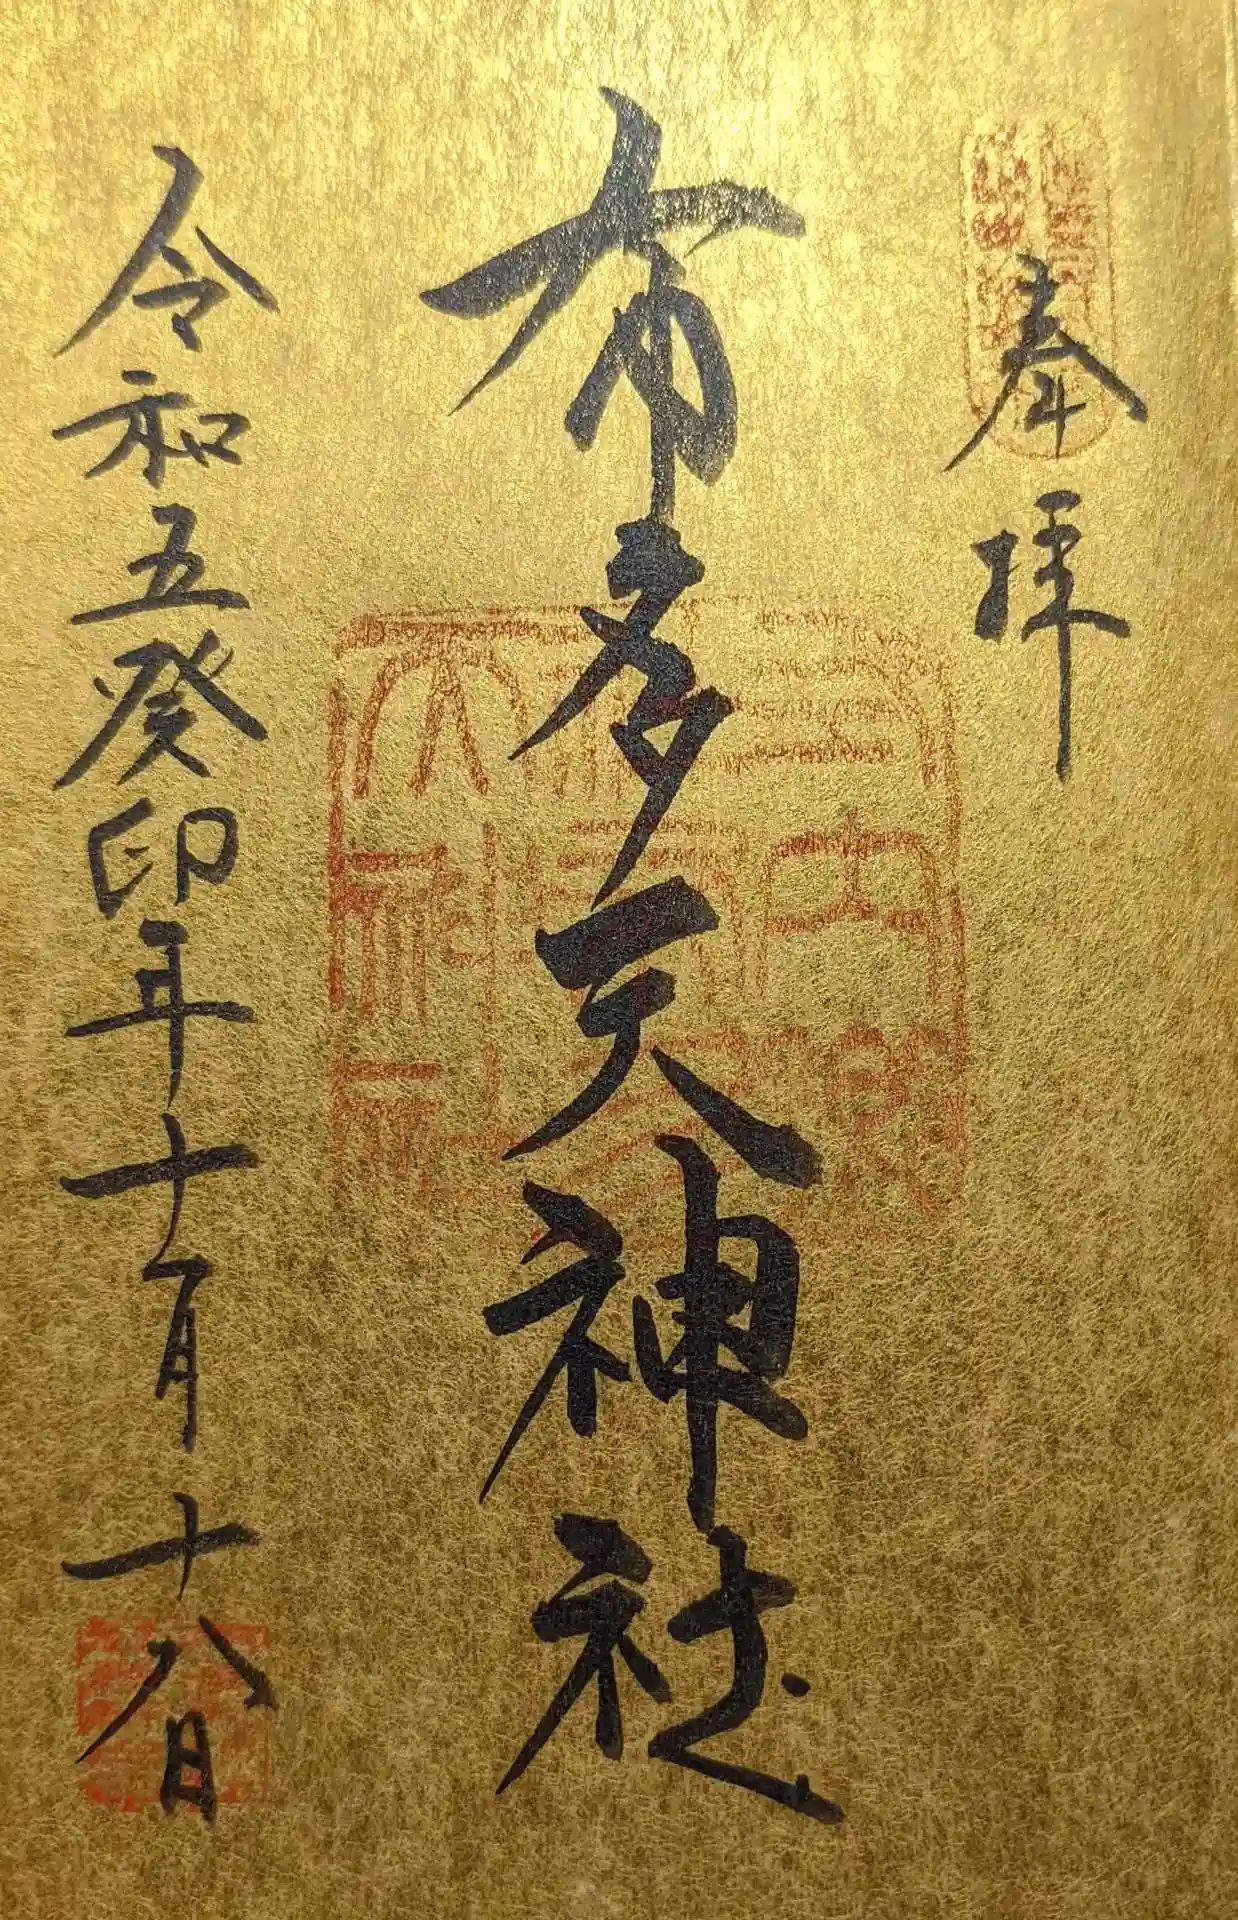 奉拝
布多天神社
令和五癸卯年十月十八日